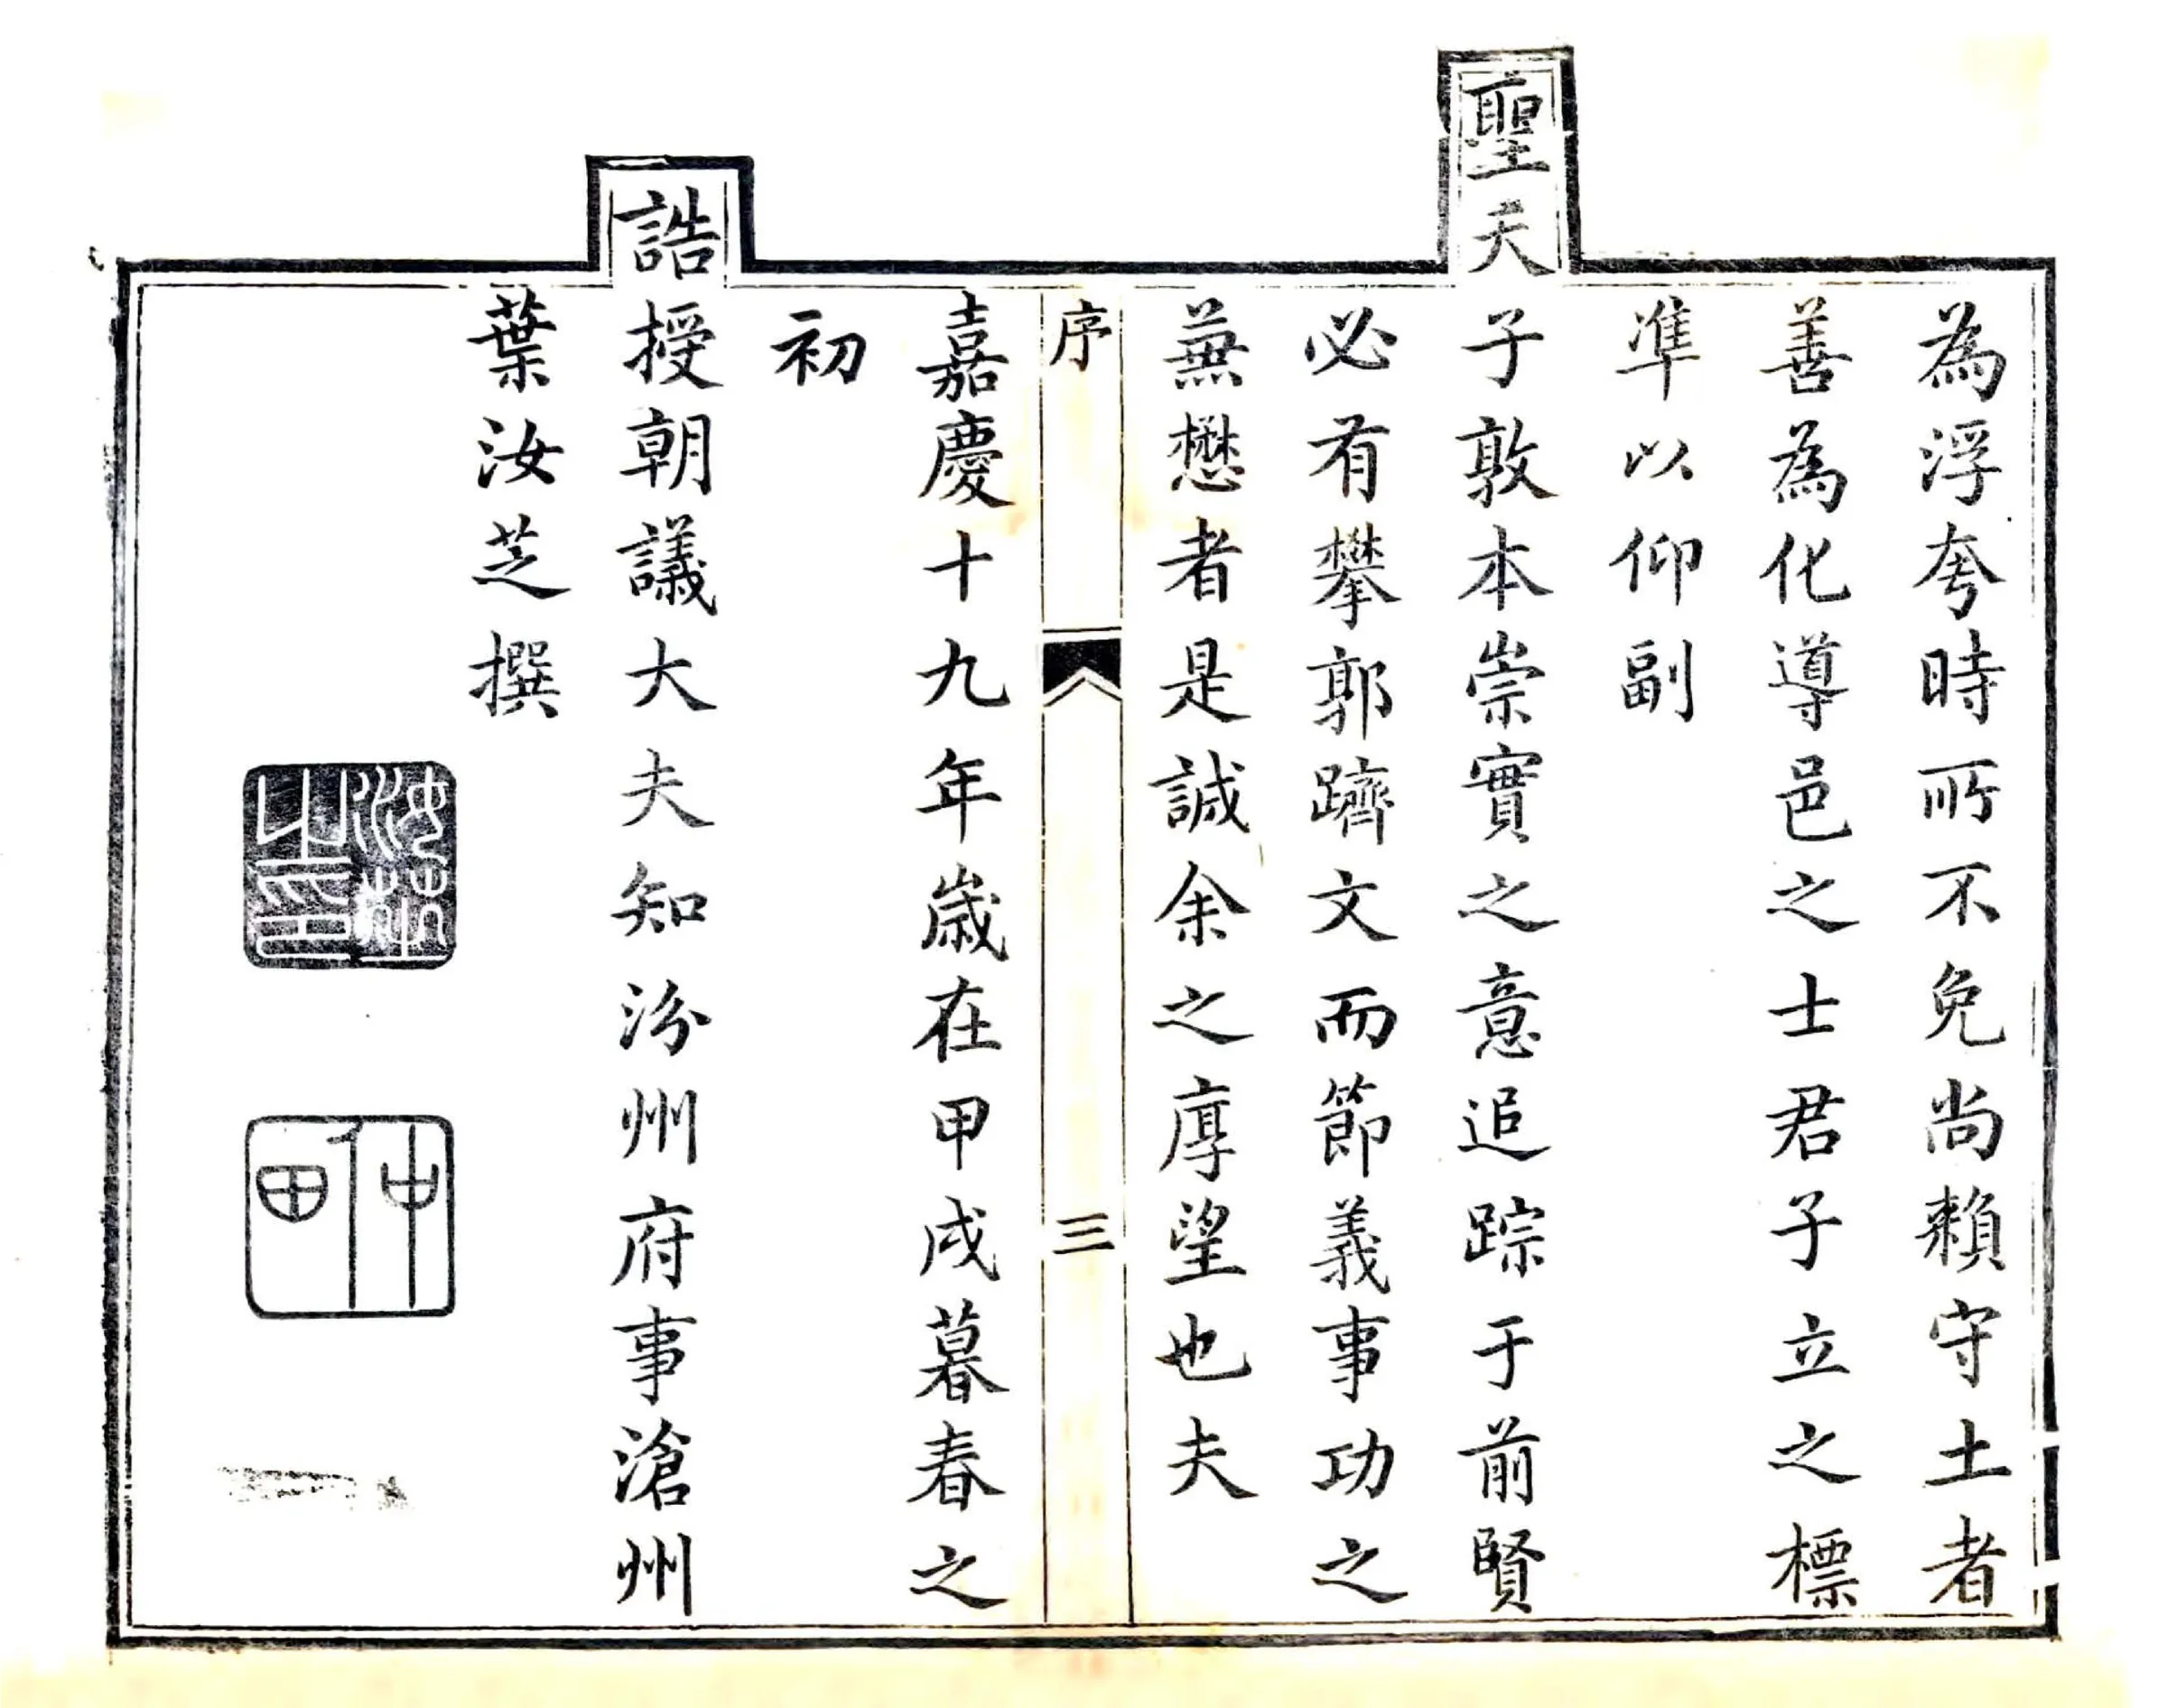 為浮夸時所不免尚賴守土者
善為化導邑之士君子立之標
準以仰副
聖天子敦本崇實之意追踪于前賢
必有攀郭躋文而節義事功之
蕪懋者是誠余之厚望也夫
序 三
嘉慶十九年歲在甲戌暮春之
初
誥授朝議大夫知汾州府事滄州
葉汝芝撰
汝芝之印
仲田